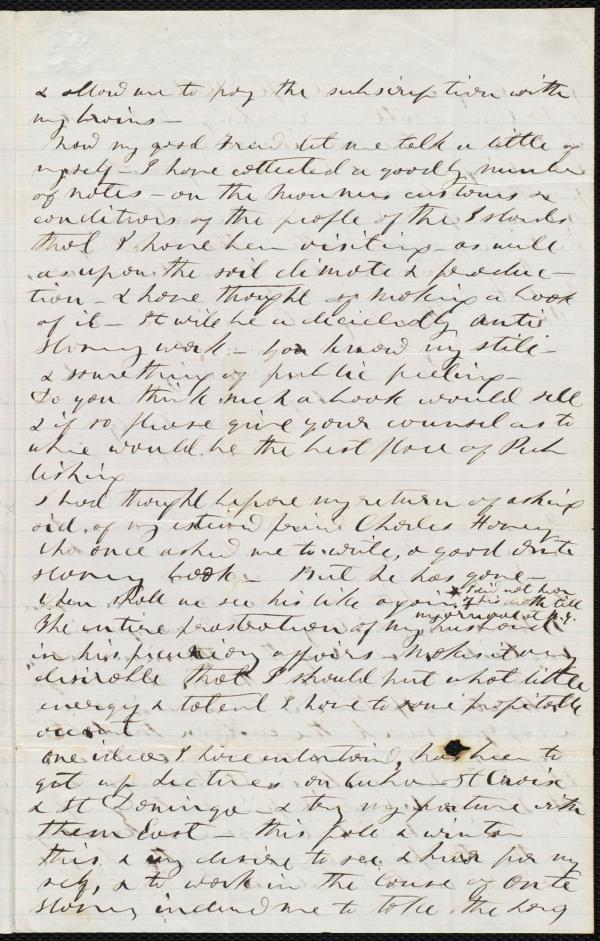 & allow me to pay the subscription with
my brains —
Now my good Friend let me talk a little of
myself — I have collected a goodly number
of notes — on the manners customs &
conditions of the people of the Islands
that I have been visiting — as well
as upon the soil climate & produc-
tion — & have thought of making a book
of it — It will be a decidedly anti
slavery work — You know my stile —
& something of public feeling —
Do you think such a book would sell
& if so please give your counsel as to
where would be the best place of Pub
lishing
I had thought before my return of asking
aid, of my esteemed friend Charles Hovey
who once asked me to write, a good Ante
slavery book — But he has gone —
When shall we see his like again * I did not hear
of his death till
my arrival at N.Y.
The entire prostration of my husband
in his pecuniary affairs — makes it very
desirable that I should put what little
energy & talent I have to some profitable
account
One idea I have entertained, has been to
get up Lectures on Cuba — St Croix
& St Domingo — & try my fortune with
them East — this fall & winter
this, & my desire to see & hear for my
self, & to work in the cause of Ante
slavery induced me to take the long